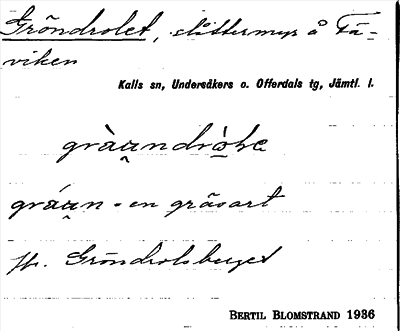 Gröndrolet, slåttermyr å Fä-
viken
Kalls sn, Undersåkers o. Offerdals tg, Jämtl. l.
gràa̯ndrò̱ḷe
gráa̯n - en gräsart
jfr. Gröndrolsberget
BERTIL BLOMSTRAND 1936